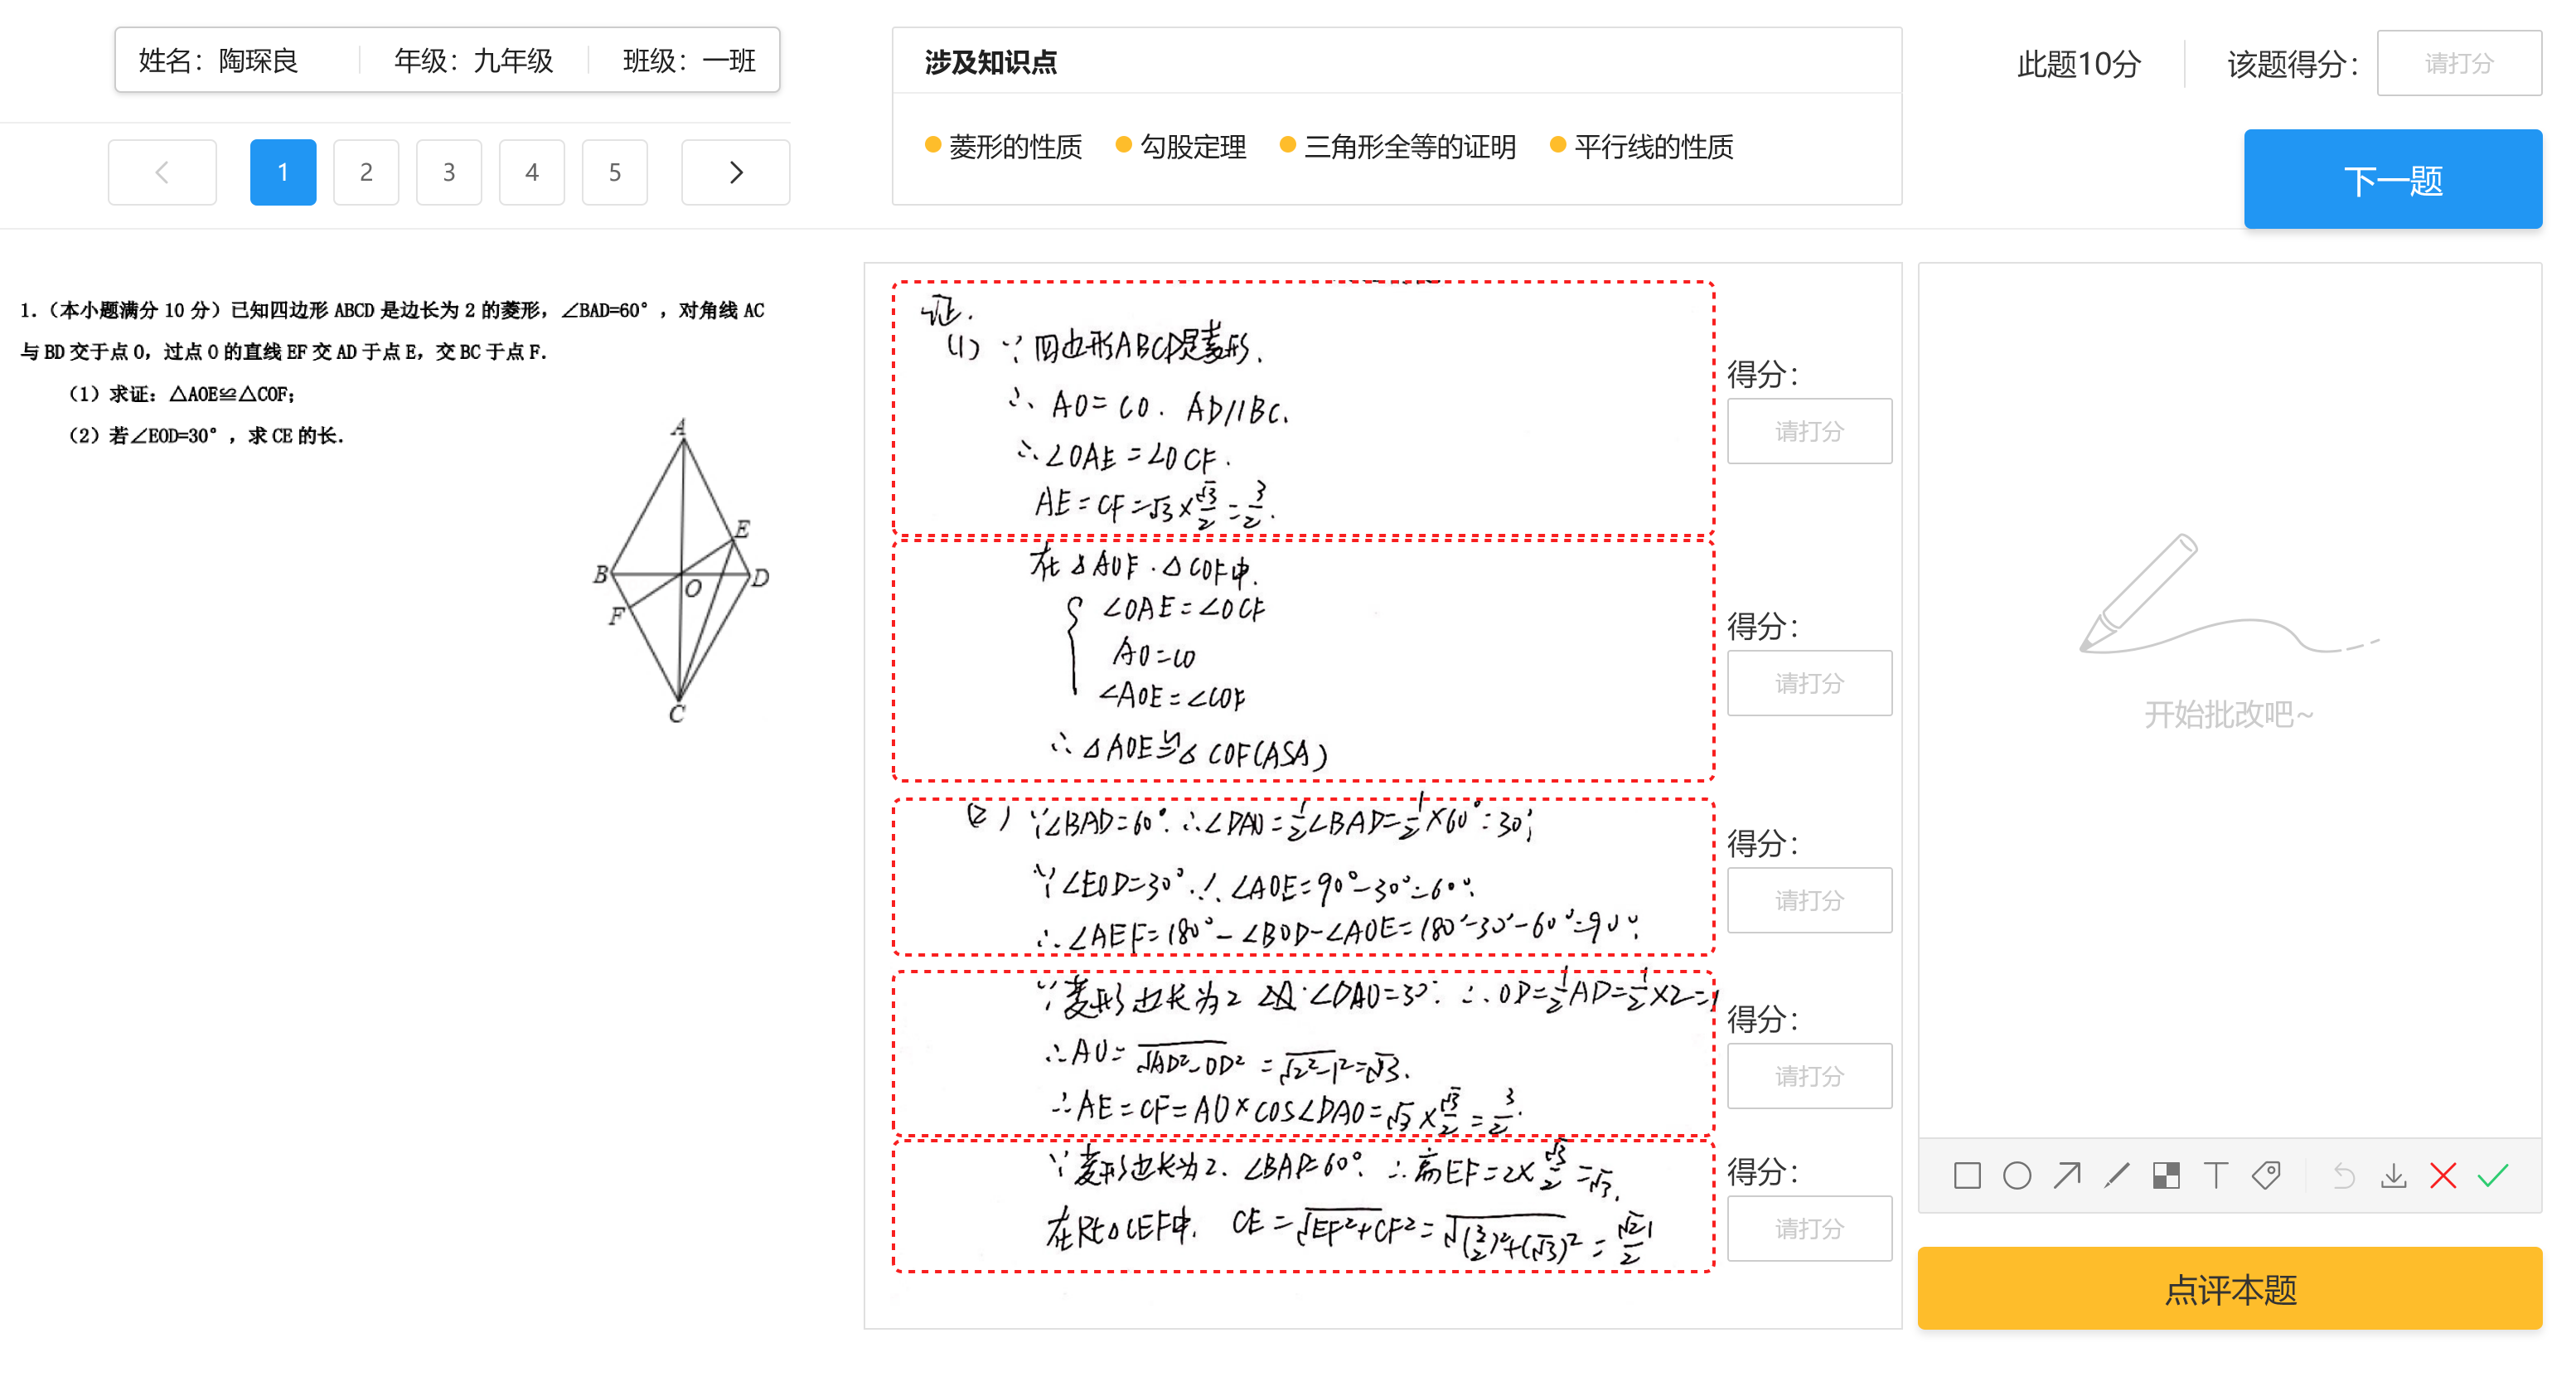 姓名：陶琛良 年级：九年级 班级：一班
1 2 3 4 5
涉及知识点
菱形的性质 勾股定理 三角形全等的证明 平行线的性质
此题10分 该题得分： 请打分
下一题
1.（本小题满分 10 分）已知四边形 ABCD 是边长为 2 的菱形，∠BAD=60°，对角线 AC
与 BD 交于点 O，过点 O 的直线 EF 交 AD 于点 E，交 BC 于点 F.
（1）求证：△AOE≌△COF；
（2）若∠EOD=30°，求 CE 的长.
A
E
B
O
D
F
C
证.
(1) ∵四边形ABCD是菱形.
∴ AO=CO. AD//BC.
∴∠OAE=∠OCF.
AE=CF=√3×√3/2=3/2.
得分：
请打分
在△AOE.△COF中.
∠OAE=∠OCF
AO=CO
∠AOE=∠COF
∴△AOE≌△COF(ASA)
得分：
请打分
(2) ∵∠BAD=60°.∴∠DAO=1/2∠BAD=1/2×60°=30°.
∵∠EOD=30°.∴∠AOE=90°-30°=60°.
∴∠AEF=180°-∠BOD-∠AOE=180°-30°-60°=90°.
得分：
请打分
∵菱形边长为2 ∠DAO=30°. ∴OD=1/2AD=1/2×2=1
∴AO=√AD²-OD² =√2²-1²=√3.
∴AE=CF=AO×COS∠DAO=√3×√3/2=3/2.
得分：
请打分
∵菱形边长为2. ∠BAD=60°. ∴高EF=2×√3/2=√3.
在Rt△CEF中. CE=√EF²+CF²=√(3/2)²+(√3)²=√21/2
得分：
请打分
开始批改吧~
T
点评本题